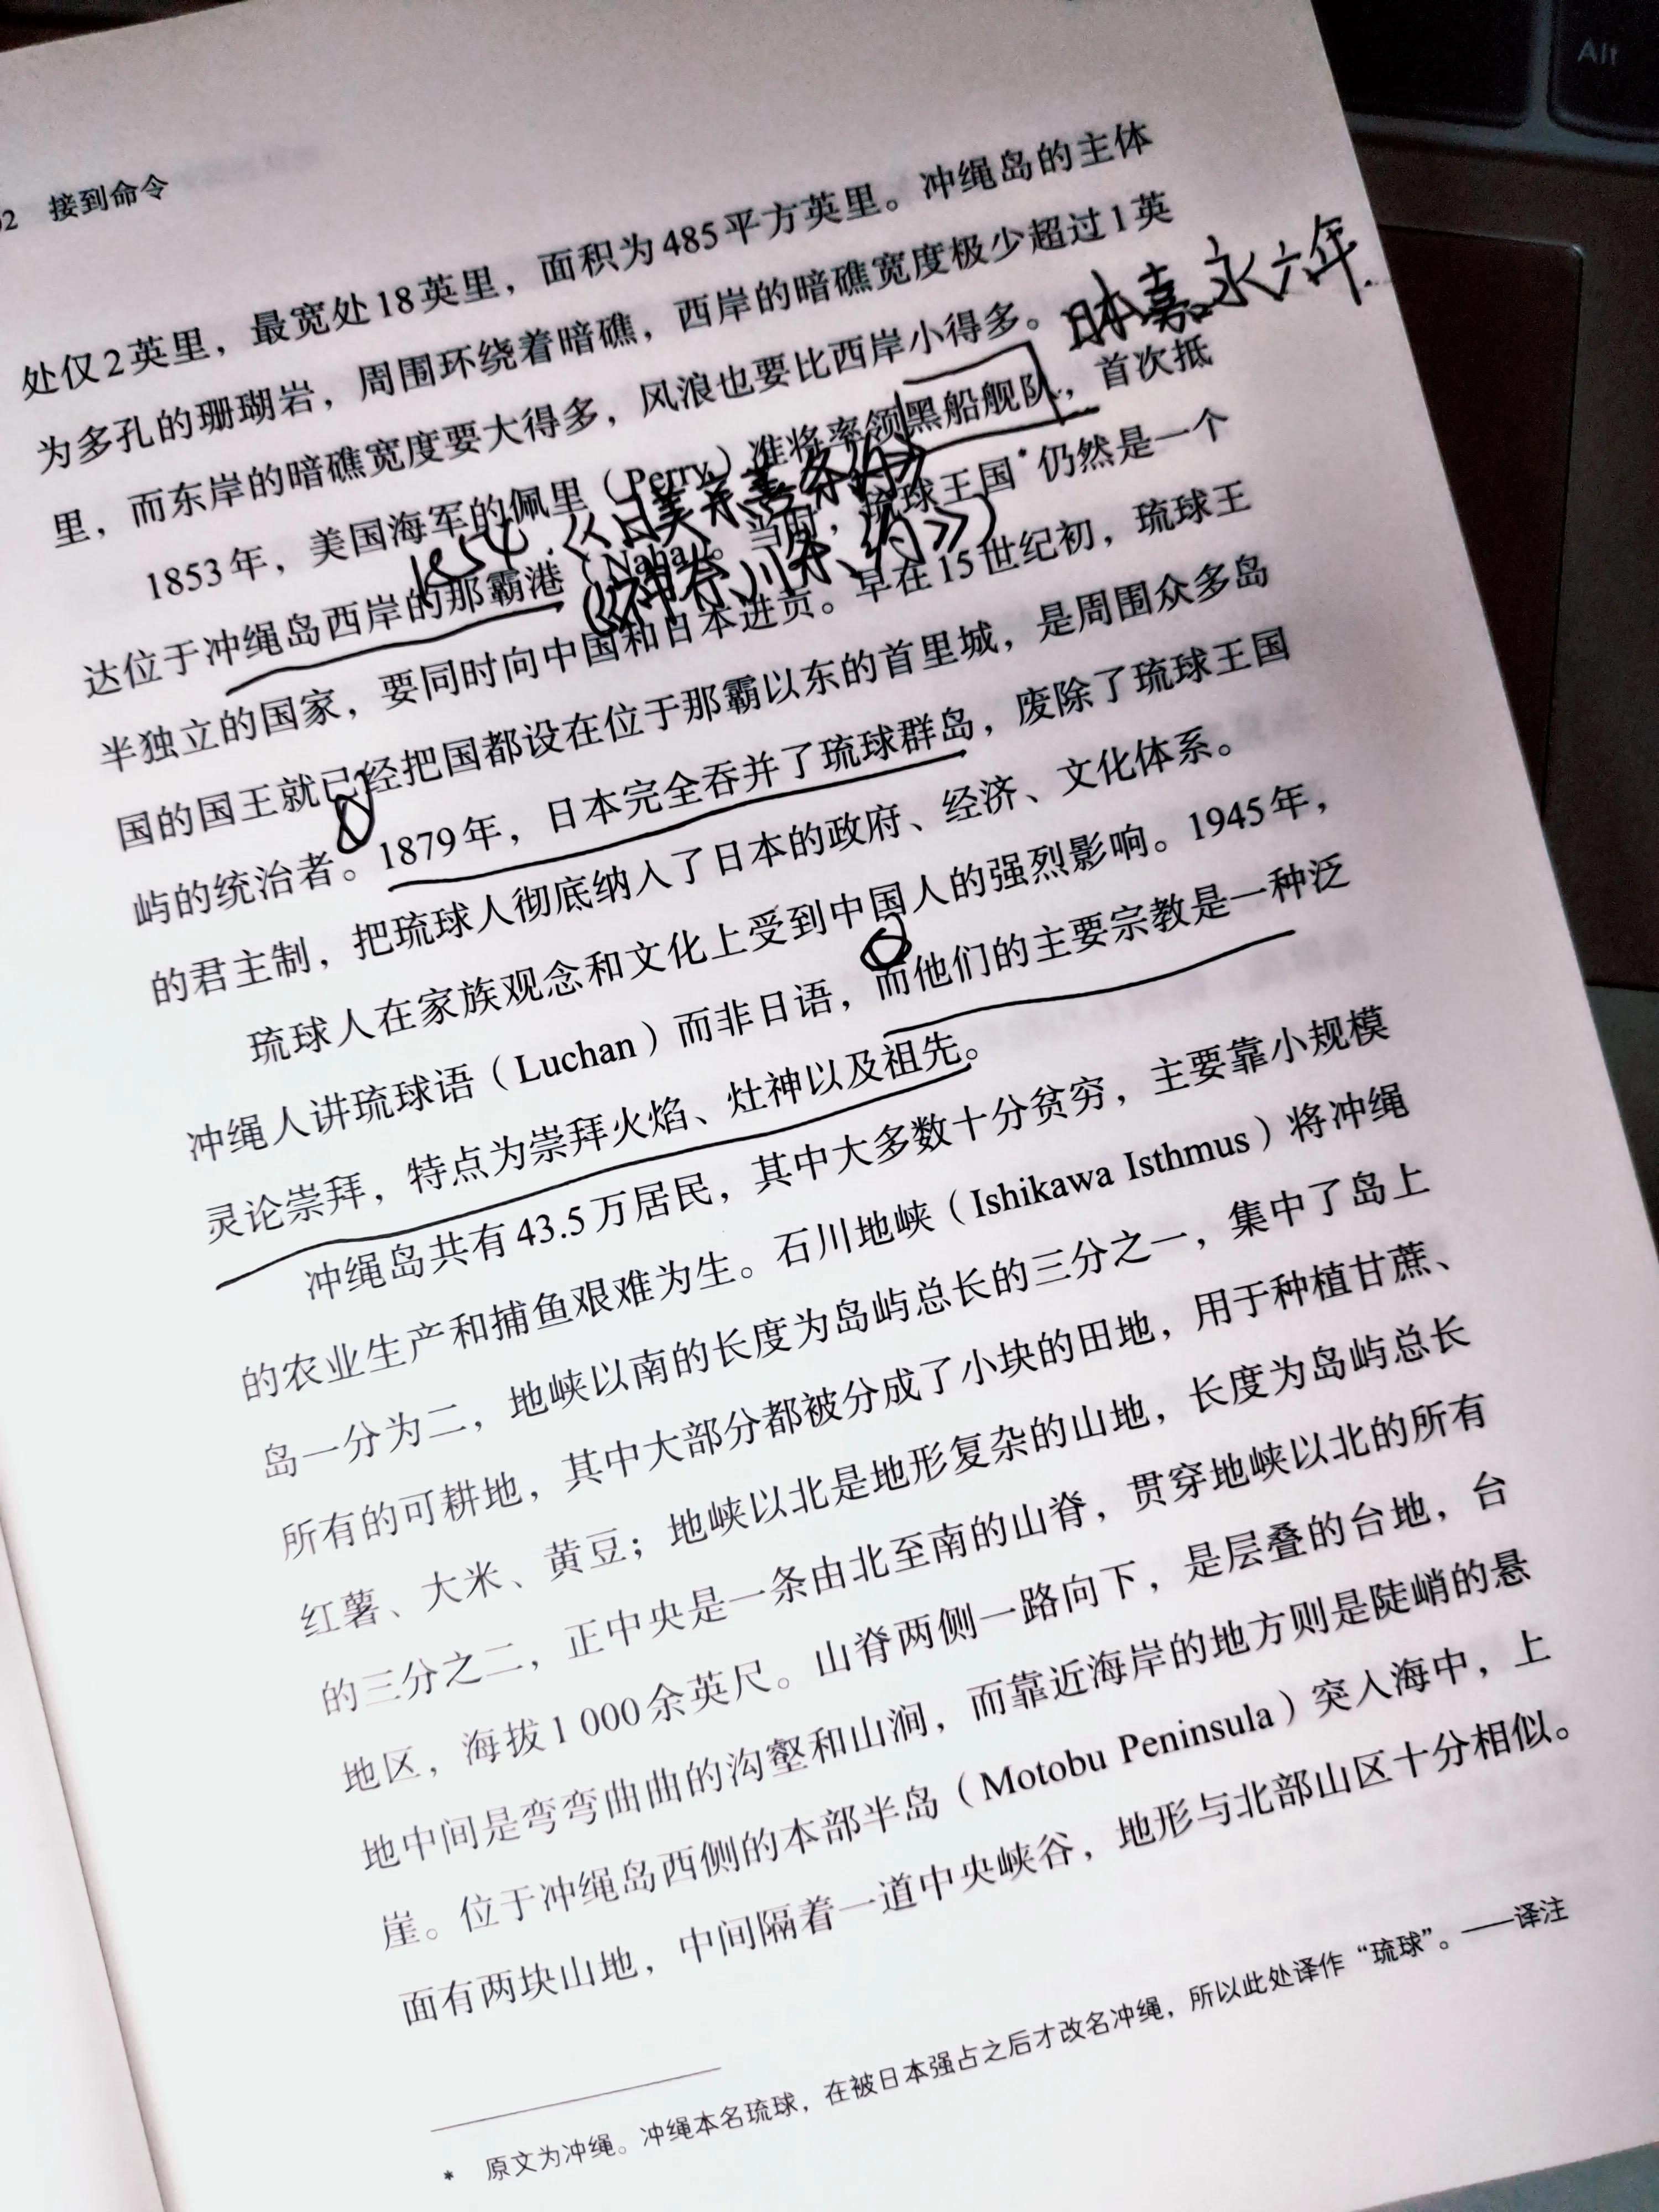 02 接到命令
处仅2英里，最宽处18英里，面积为485平方英里。冲绳岛的主体
为多孔的珊瑚岩，周围环绕着暗礁，西岸的暗礁宽度极少超过1英
里，而东岸的暗礁宽度要大得多，风浪也要比西岸小得多。
日本嘉永六年.
1853年，美国海军的佩里（Perry）准将率领黑船舰队，首次抵
1854.《日美亲善条约》
达位于冲绳岛西岸的那霸港（Naha）。当时，琉球王国*仍然是一个
（《神奈川条约》）
半独立的国家，要同时向中国和日本进贡。早在15世纪初，琉球王
国的国王就已经把国都设在位于那霸以东的首里城，是周围众多岛
屿的统治者。1879年，日本完全吞并了琉球群岛，废除了琉球王国
的君主制，把琉球人彻底纳入了日本的政府、经济、文化体系。
琉球人在家族观念和文化上受到中国人的强烈影响。1945年，
冲绳人讲琉球语（Luchan）而非日语，而他们的主要宗教是一种泛
灵论崇拜，特点为崇拜火焰、灶神以及祖先。
冲绳岛共有43.5万居民，其中大多数十分贫穷，主要靠小规模
的农业生产和捕鱼艰难为生。石川地峡（Ishikawa Isthmus）将冲绳
岛一分为二，地峡以南的长度为岛屿总长的三分之一，集中了岛上
所有的可耕地，其中大部分都被分成了小块的田地，用于种植甘蔗、
红薯、大米、黄豆；地峡以北是地形复杂的山地，长度为岛屿总长
的三分之二，正中央是一条由北至南的山脊，贯穿地峡以北的所有
地区，海拔1 000余英尺。山脊两侧一路向下，是层叠的台地，台
地中间是弯弯曲曲的沟壑和山涧，而靠近海岸的地方则是陡峭的悬
崖。位于冲绳岛西侧的本部半岛（Motobu Peninsula）突入海中，上
面有两块山地，中间隔着一道中央峡谷，地形与北部山区十分相似。
* 原文为冲绳。冲绳本名琉球，在被日本强占之后才改名冲绳，所以此处译作“琉球”。——译注
Alt